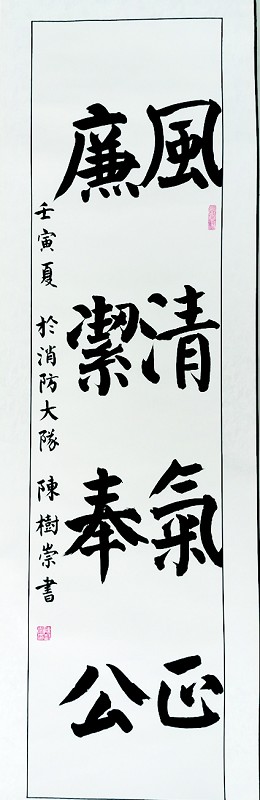 風清氣正
廉潔奉公
壬寅夏 於消防大隊 陳樹崇書